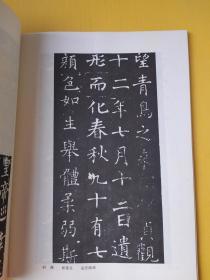 望青鳥之貞觀
十二年七月十二日遺
形而化春秋九十有七
顏色如生舉體柔弱斯
皇帝